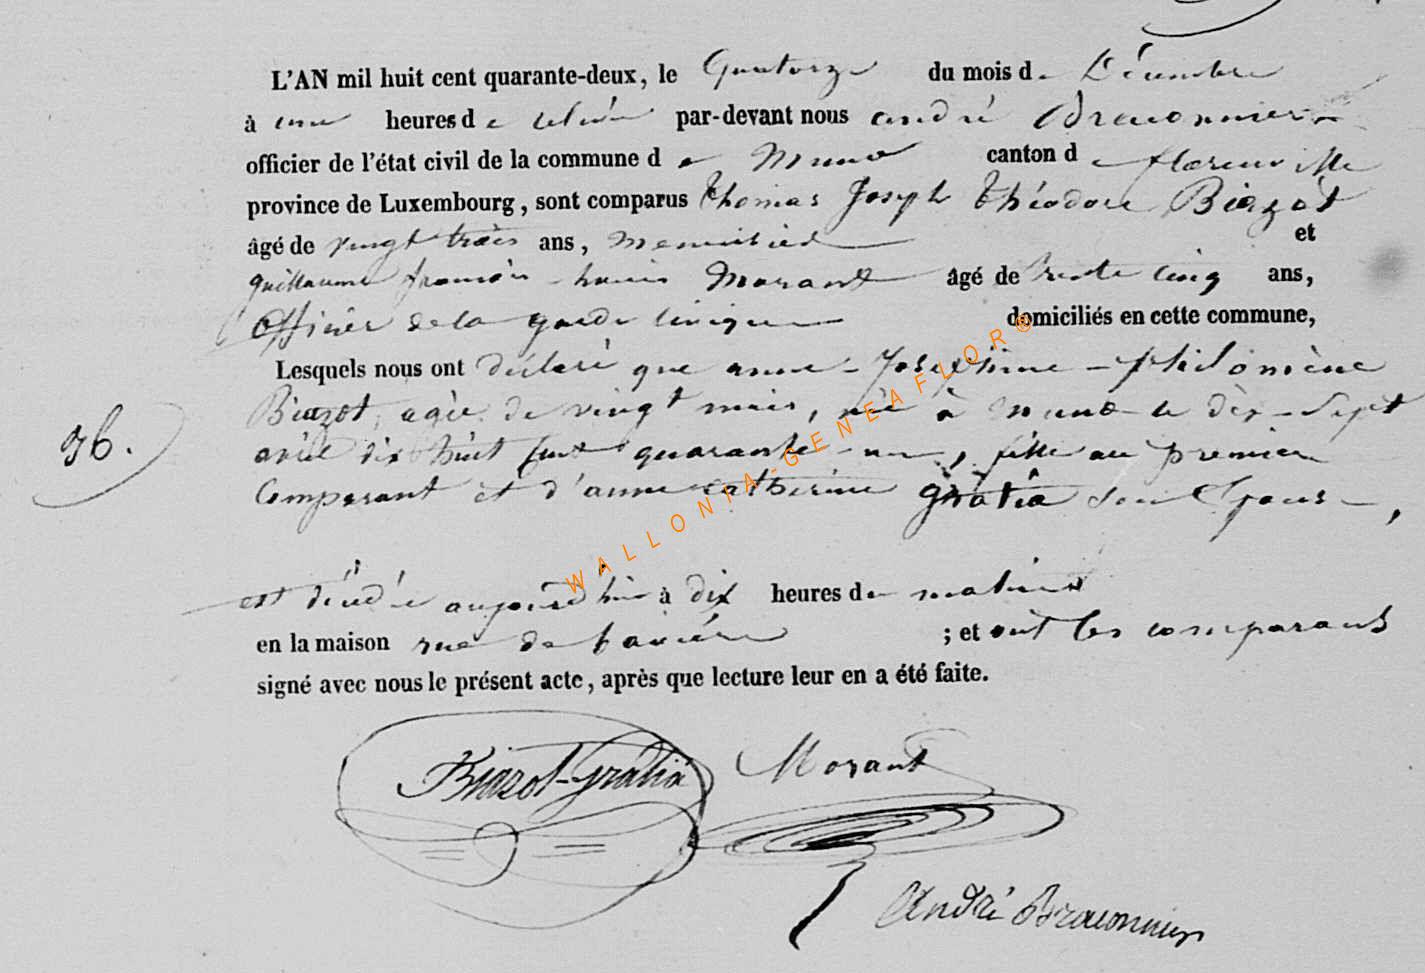 L'AN mil huit cent quarante-deux, le Quatorze du mois de Décembre
à une heures de relevée par-devant nous andré Braconnier
officier de l'état civil de la commune de Muno canton de florenville
province de Luxembourg, sont comparus Thomas Joseph Théodore Biazot
âgé de vingt trois ans, menuisier et
guillaume françois - louis Morant âgé de trente cinq ans,
officier de la garde civique domiciliés en cette commune,
Lesquels nous ont déclaré que anne - Josephine - philomène
Biazot, agée de vingt mois, née à Muno le dix - Sept
avril dix huit cent quarante - un, fille au premier
Comparant et d'anne catherine gratia son Epouse,
36.
est décédée aujourd'hui à dix heures du matin
en la maison rue de ; et ont les comparants
signé avec nous le présent acte, après que lecture leur en a été faite.
Biazot-Gratia Morant
André Braconnier
WALLONIA-GENEAFLOR®